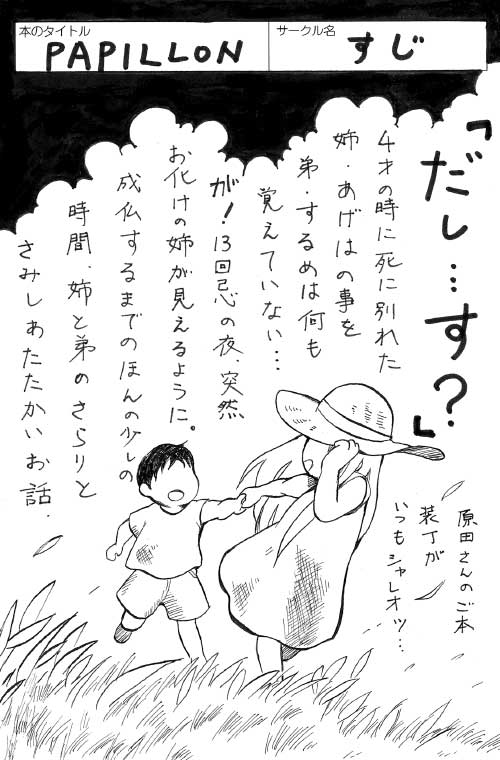 本のタイトル
PAPILLON
サークル名
すじ
「だし…す？」
4才の時に死に別れた
姉・あげはの事を
弟・するめは何も
覚えていない…
が！13回忌の夜、突然
お化けの姉が見えるように。
成仏するまでのほんの少しの
時間、姉と弟のさらりと
さみしあたたかいお話.
原田さんのご本
装丁が
いつもシャレオツ…